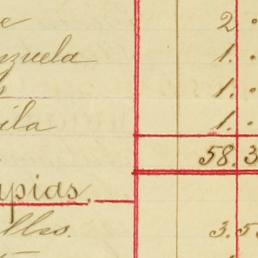 2.
zuela 1.
1.
ila 1.
58.3
pias.
lles. 3.50